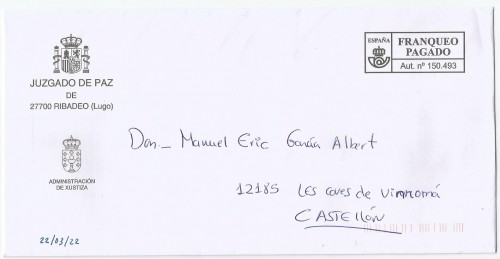 JUZGADO DE PAZ
DE
27700 RIBADEO (Lugo)
ADMINISTRACIÓN
DE XUSTIZA
ESPAÑA
FRANQUEO
PAGADO
Aut. nº 150.493
Don_ Manuel Eric García Albert
12185 Les coves de Vinromá
CASTELLÓN
22/03/22